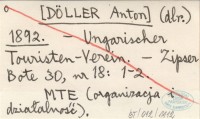 [DÖLLER Anton] (dbr.)
1892. - Ungarischer
Touristen-Verein. - Zipser
Bote 30, nr 18: 1-2.
MTE (organizacja i
działalność).